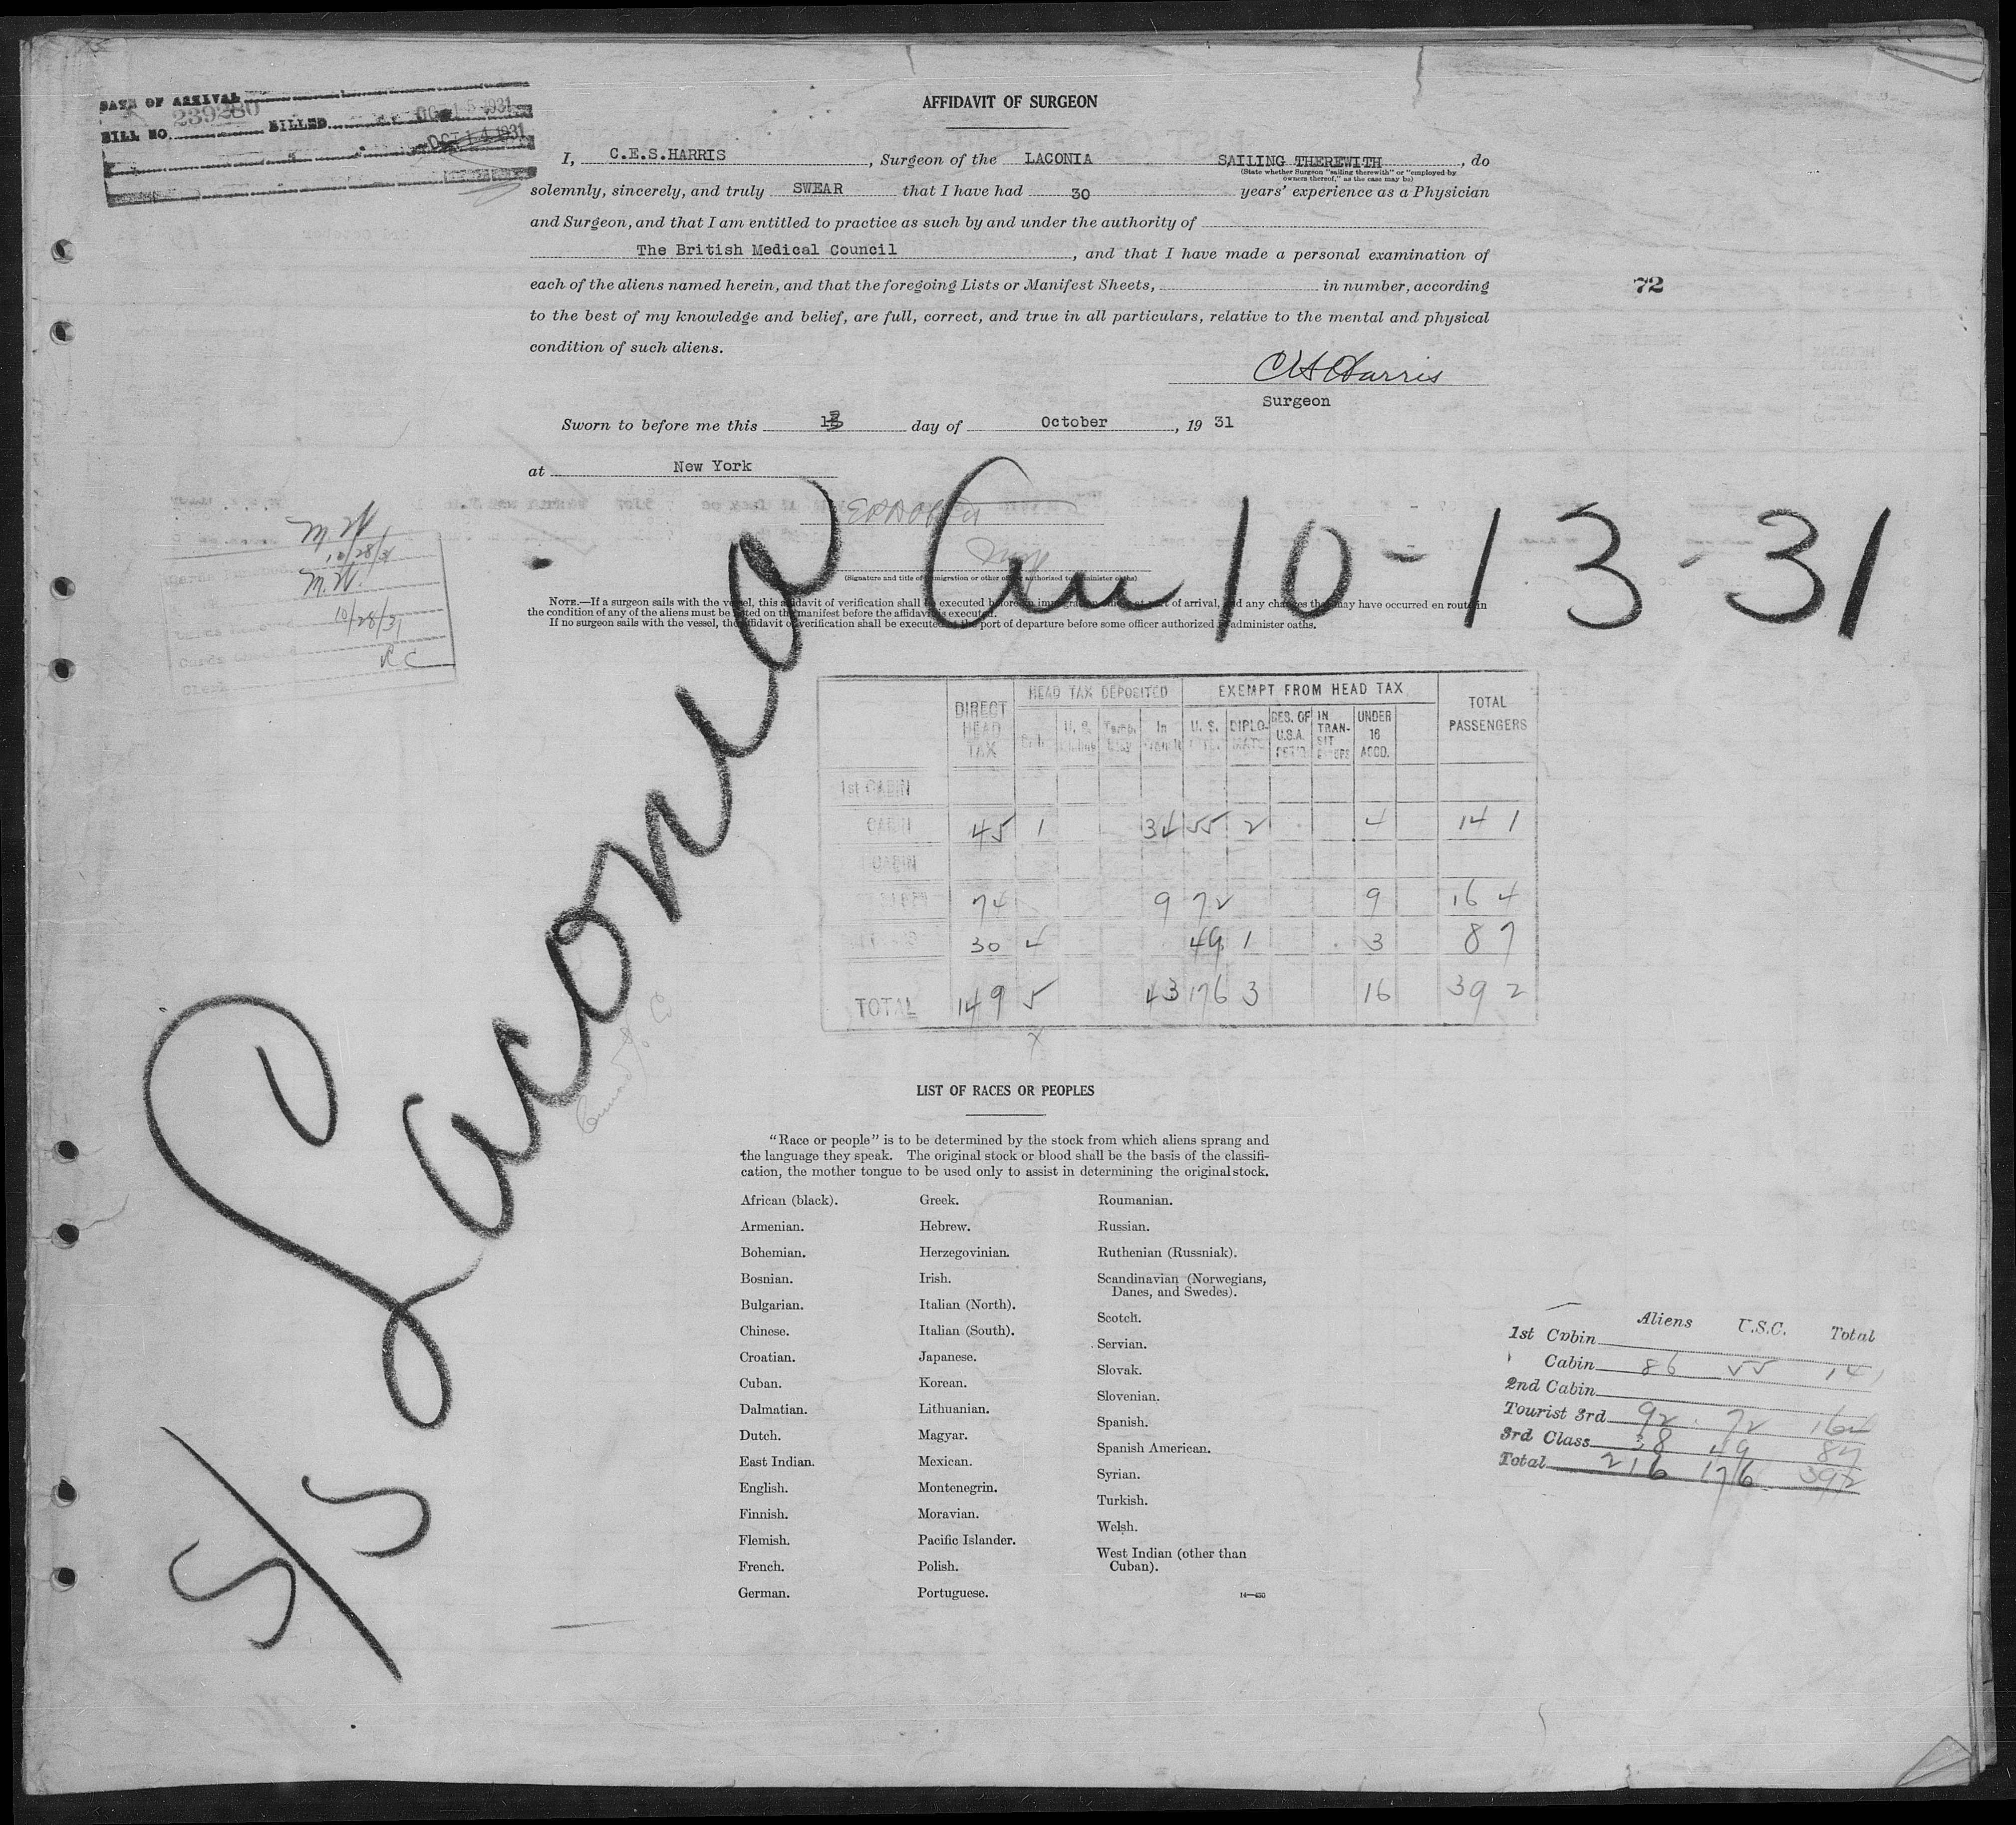 DATE OF ARRIVAL
BILL NO. 239280 BILLED OCT 15 1931
OCT 14 1931
AFFIDAVIT OF SURGEON
I, C.E.S.HARRIS, Surgeon of the LACONIA SAILING THEREWITH, do
(State whether Surgeon "sailing therewith" or "employed by
owners thereof," as the case may be)
solemnly, sincerely, and truly SWEAR that I have had 30 years' experience as a Physician
and Surgeon, and that I am entitled to practice as such by and under the authority of
The British Medical Council, and that I have made a personal examination of
each of the aliens named herein, and that the foregoing Lists or Manifest Sheets, in number, according
72
to the best of my knowledge and belief, are full, correct, and true in all particulars, relative to the mental and physical
condition of such aliens.
CES Harris
Surgeon
Sworn to before me this 13 day of October, 19 31
at New York
(Signature and title of immigration or other officer authorized to administer oaths)
NOTE.—If a surgeon sails with the vessel, this affidavit of verification shall be executed before an immigration officer at port of arrival, and any changes that may have occurred en route in
the condition of any of the aliens must be noted on the manifest before the affidavit is executed.
If no surgeon sails with the vessel, the affidavit of verification shall be executed at the port of departure before some officer authorized to administer oaths.
M.H.
10/28/31
M.H.
10/28/31
Cards Checked
RC
Clerk
S/S Laconia Cu 10-13-31
DIRECT HEAD TAX
HEAD TAX DEPOSITED
EXEMPT FROM HEAD TAX
TOTAL PASSENGERS
U. S. Temp. Stay In Transit U. S. DIPLO- MATS RES. OF U.S.A. RET'D IN TRAN- SIT UNDER 16 ACCD.
1st CABIN
CABIN 45 1 34 55 2 4 141
CABIN
74 9 72 9 164
30 4 49 1 3 87
TOTAL 149 5 43 176 3 16 392
x
LIST OF RACES OR PEOPLES
"Race or people" is to be determined by the stock from which aliens sprang and
the language they speak. The original stock or blood shall be the basis of the classifi-
cation, the mother tongue to be used only to assist in determining the original stock.
African (black).
Armenian.
Bohemian.
Bosnian.
Bulgarian.
Chinese.
Croatian.
Cuban.
Dalmatian.
Dutch.
East Indian.
English.
Finnish.
Flemish.
French.
German.
Greek.
Hebrew.
Herzegovinian.
Irish.
Italian (North).
Italian (South).
Japanese.
Korean.
Lithuanian.
Magyar.
Mexican.
Montenegrin.
Moravian.
Pacific Islander.
Polish.
Portuguese.
Roumanian.
Russian.
Ruthenian (Russniak).
Scandinavian (Norwegians,
Danes, and Swedes).
Scotch.
Servian.
Slovak.
Slovenian.
Spanish.
Spanish American.
Syrian.
Turkish.
Welsh.
West Indian (other than
Cuban).
14—430
Aliens U.S.C. Total
1st Cabin
Cabin 86 55 141
2nd Cabin
Tourist 3rd 92 72 164
3rd Class 38 49 87
Total 216 176 392